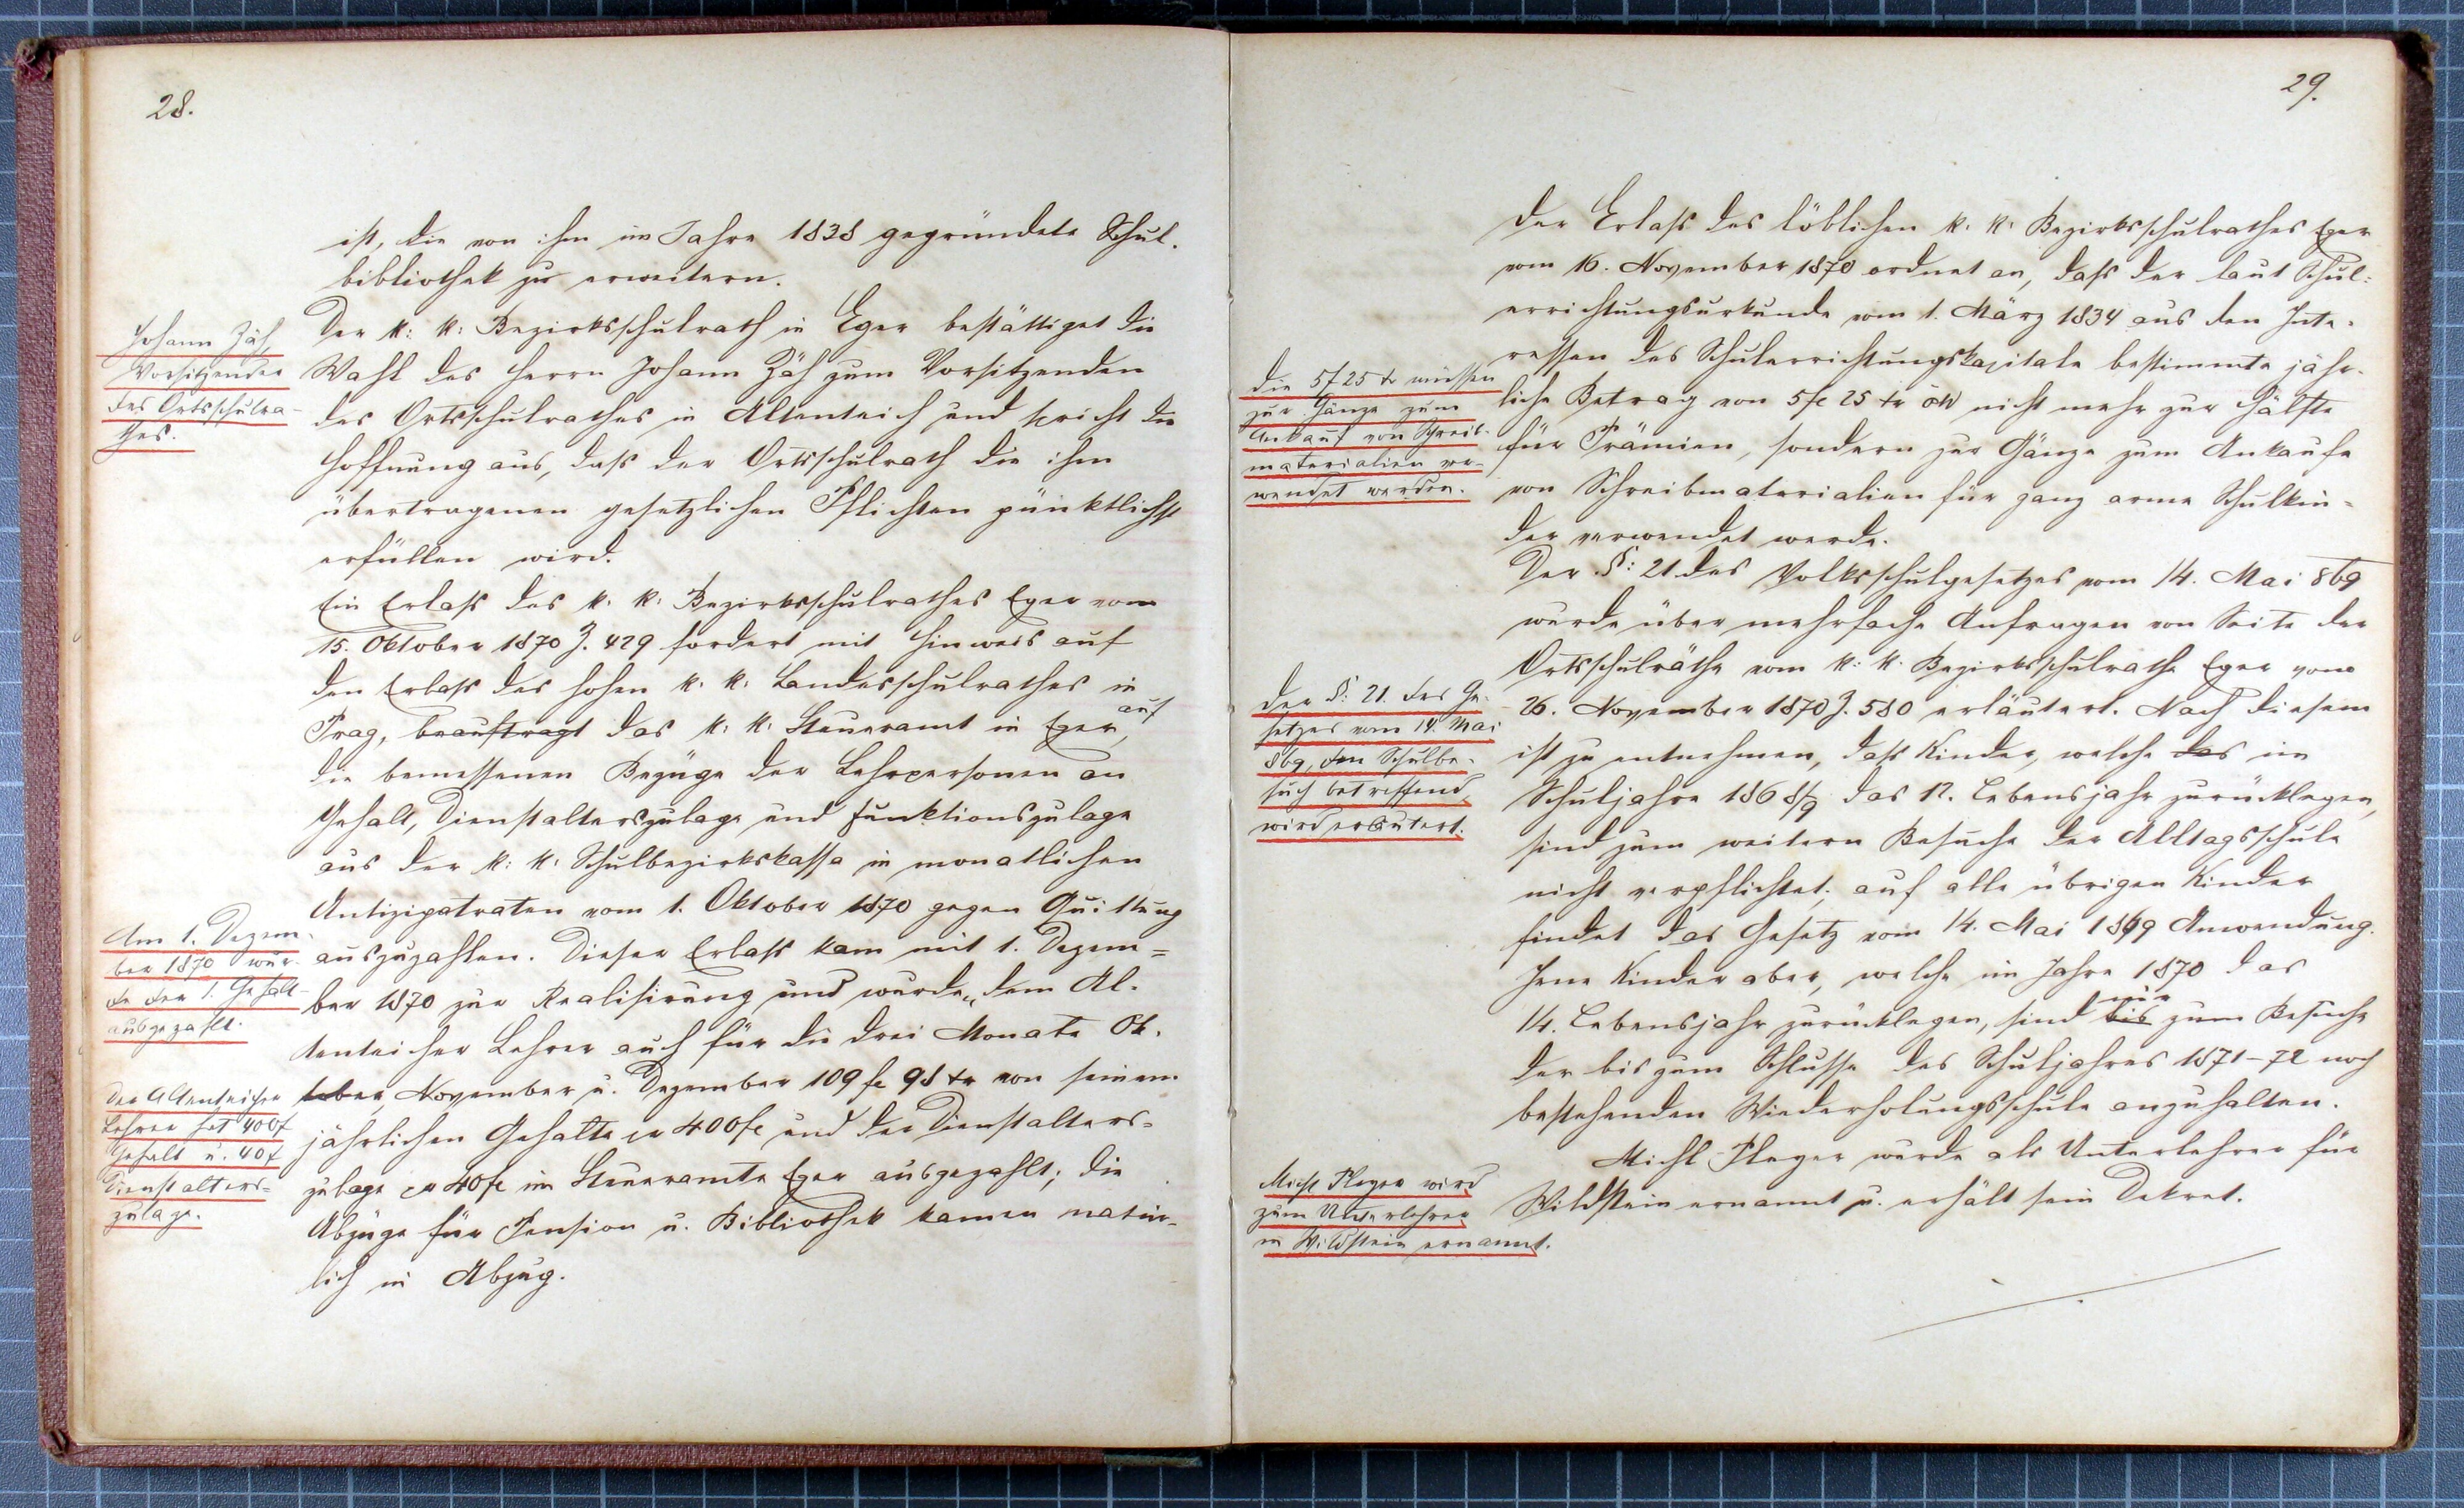 28.
ist, die von ihm im Jahre 1838 gegründete Schul-
bibliothek zu erweitern.
Johann Zäh,
Vorsitzender
des Ortsschulra-
thes.
Der k: k: Bezirksschulrath in Eger bestättiget die
Wahl des Herrn Johann Zäh zum Vorsitzenden
des Ortsschulrathes in Altenteich und spricht die
Hoffnung aus, daß der Ortsschulrath die ihm
übertragenen gesetzlichen Pflichten pünktlichst
erfüllen wird.
Ein Erlaß des k. k. Bezirksschulrathes Eger vom
15. Oktober 1870 Z. 429 fordert mit Hinweis auf
den Erlaß des hohen k. k. Landesschulrathes in
Prag, beauftragt das k. k. Steueramt in Eger, auf
die bemessenen Bezüge der Lehrpersonen an
Gehalt, Dienstalterszulage und Funktionszulage
aus der k: k: Schulbezirkskassa in monatlichen
Antizipatraten vom 1. Oktober 1870 gegen Quittung
Am 1. Dezem-
ber 1870 wur-
de der 1. Gehalt
ausgezahlt.
auszuzahlen. Dieser Erlaß kam mit 1. Dezem=
ber 1870 zur Realisirung und wurde dem Al-
tenteicher Lehrer auch für die drei Monate Ok-
tober, November u. Dezember 109 fl 98 kr von seinem
Der Altenteicher
Lehrer hat 400 f
Gehalt u. 40 f
Dienstalters=
zulage.
jährlichen Gehalte pr 400 fl und der Dienstalters=
zulage pr 40 fl im Steueramte Eger ausgezahlt; die
Abzüge für Pension u. Bibliothek kamen natür-
lich in Abzug.
29.
Der Erlaß des löblichen k. k. Bezirksschulrathes Eger
vom 16. November 1870 ordnet an, daß der laut Schul-
errichtungsurkunde vom 1. März 1834 aus den Inte-
ressen des Schulerrichtungskapitale bestimmte jähr-
Die 5 f 25 kr müssen
zur Gänze zum
Ankauf von Schreib-
materialien ver-
wendet werden.
liche Betrag von 5 fl 25 kr öW nicht mehr zur Hälfte
für Prämien, sondern zur Gänze zum Ankaufe
von Schreibmaterialien für ganz arme Schulkin-
der verwendet werde.
Der §: 21 des Volksschulgesetzes vom 14. Mai 869
wurde über mehrfache Anfragen von Seite der
Ortsschulräthe vom k: k. Bezirksschulrathe Eger vom
Der §: 21. des Ge-
setzes vom 14. Mai
869, den Schulbe-
such betreffend,
wird erläutert.
26. November 1870 Z. 580 erläutert. Nach diesem
ist zu entnehmen, daß Kinder, welche das im
Schuljahre 1868/9 das 12. Lebensjahr zurücklegen,
sind zum weitern Besuche der Alltagsschule
nicht verpflichtet; auf alle übrigen Kinder
findet das Gesetz vom 14. Mai 1869 Anwendung.
Jene Kinder aber, welche im Jahre 1870 das
14. Lebensjahr zurücklegen, sind bis nur zum Besuche
der bis zum Schlusse des Schuljahres 1871-72 noch
bestehenden Wiederholungsschule anzuhalten.
Michl Pleyer wird
zum Unterlehrer
in Wildstein ernannt.
Michl Pleyer wurde als Unterlehrer für
Wildstein ernannt u. erhält sein Dekret.